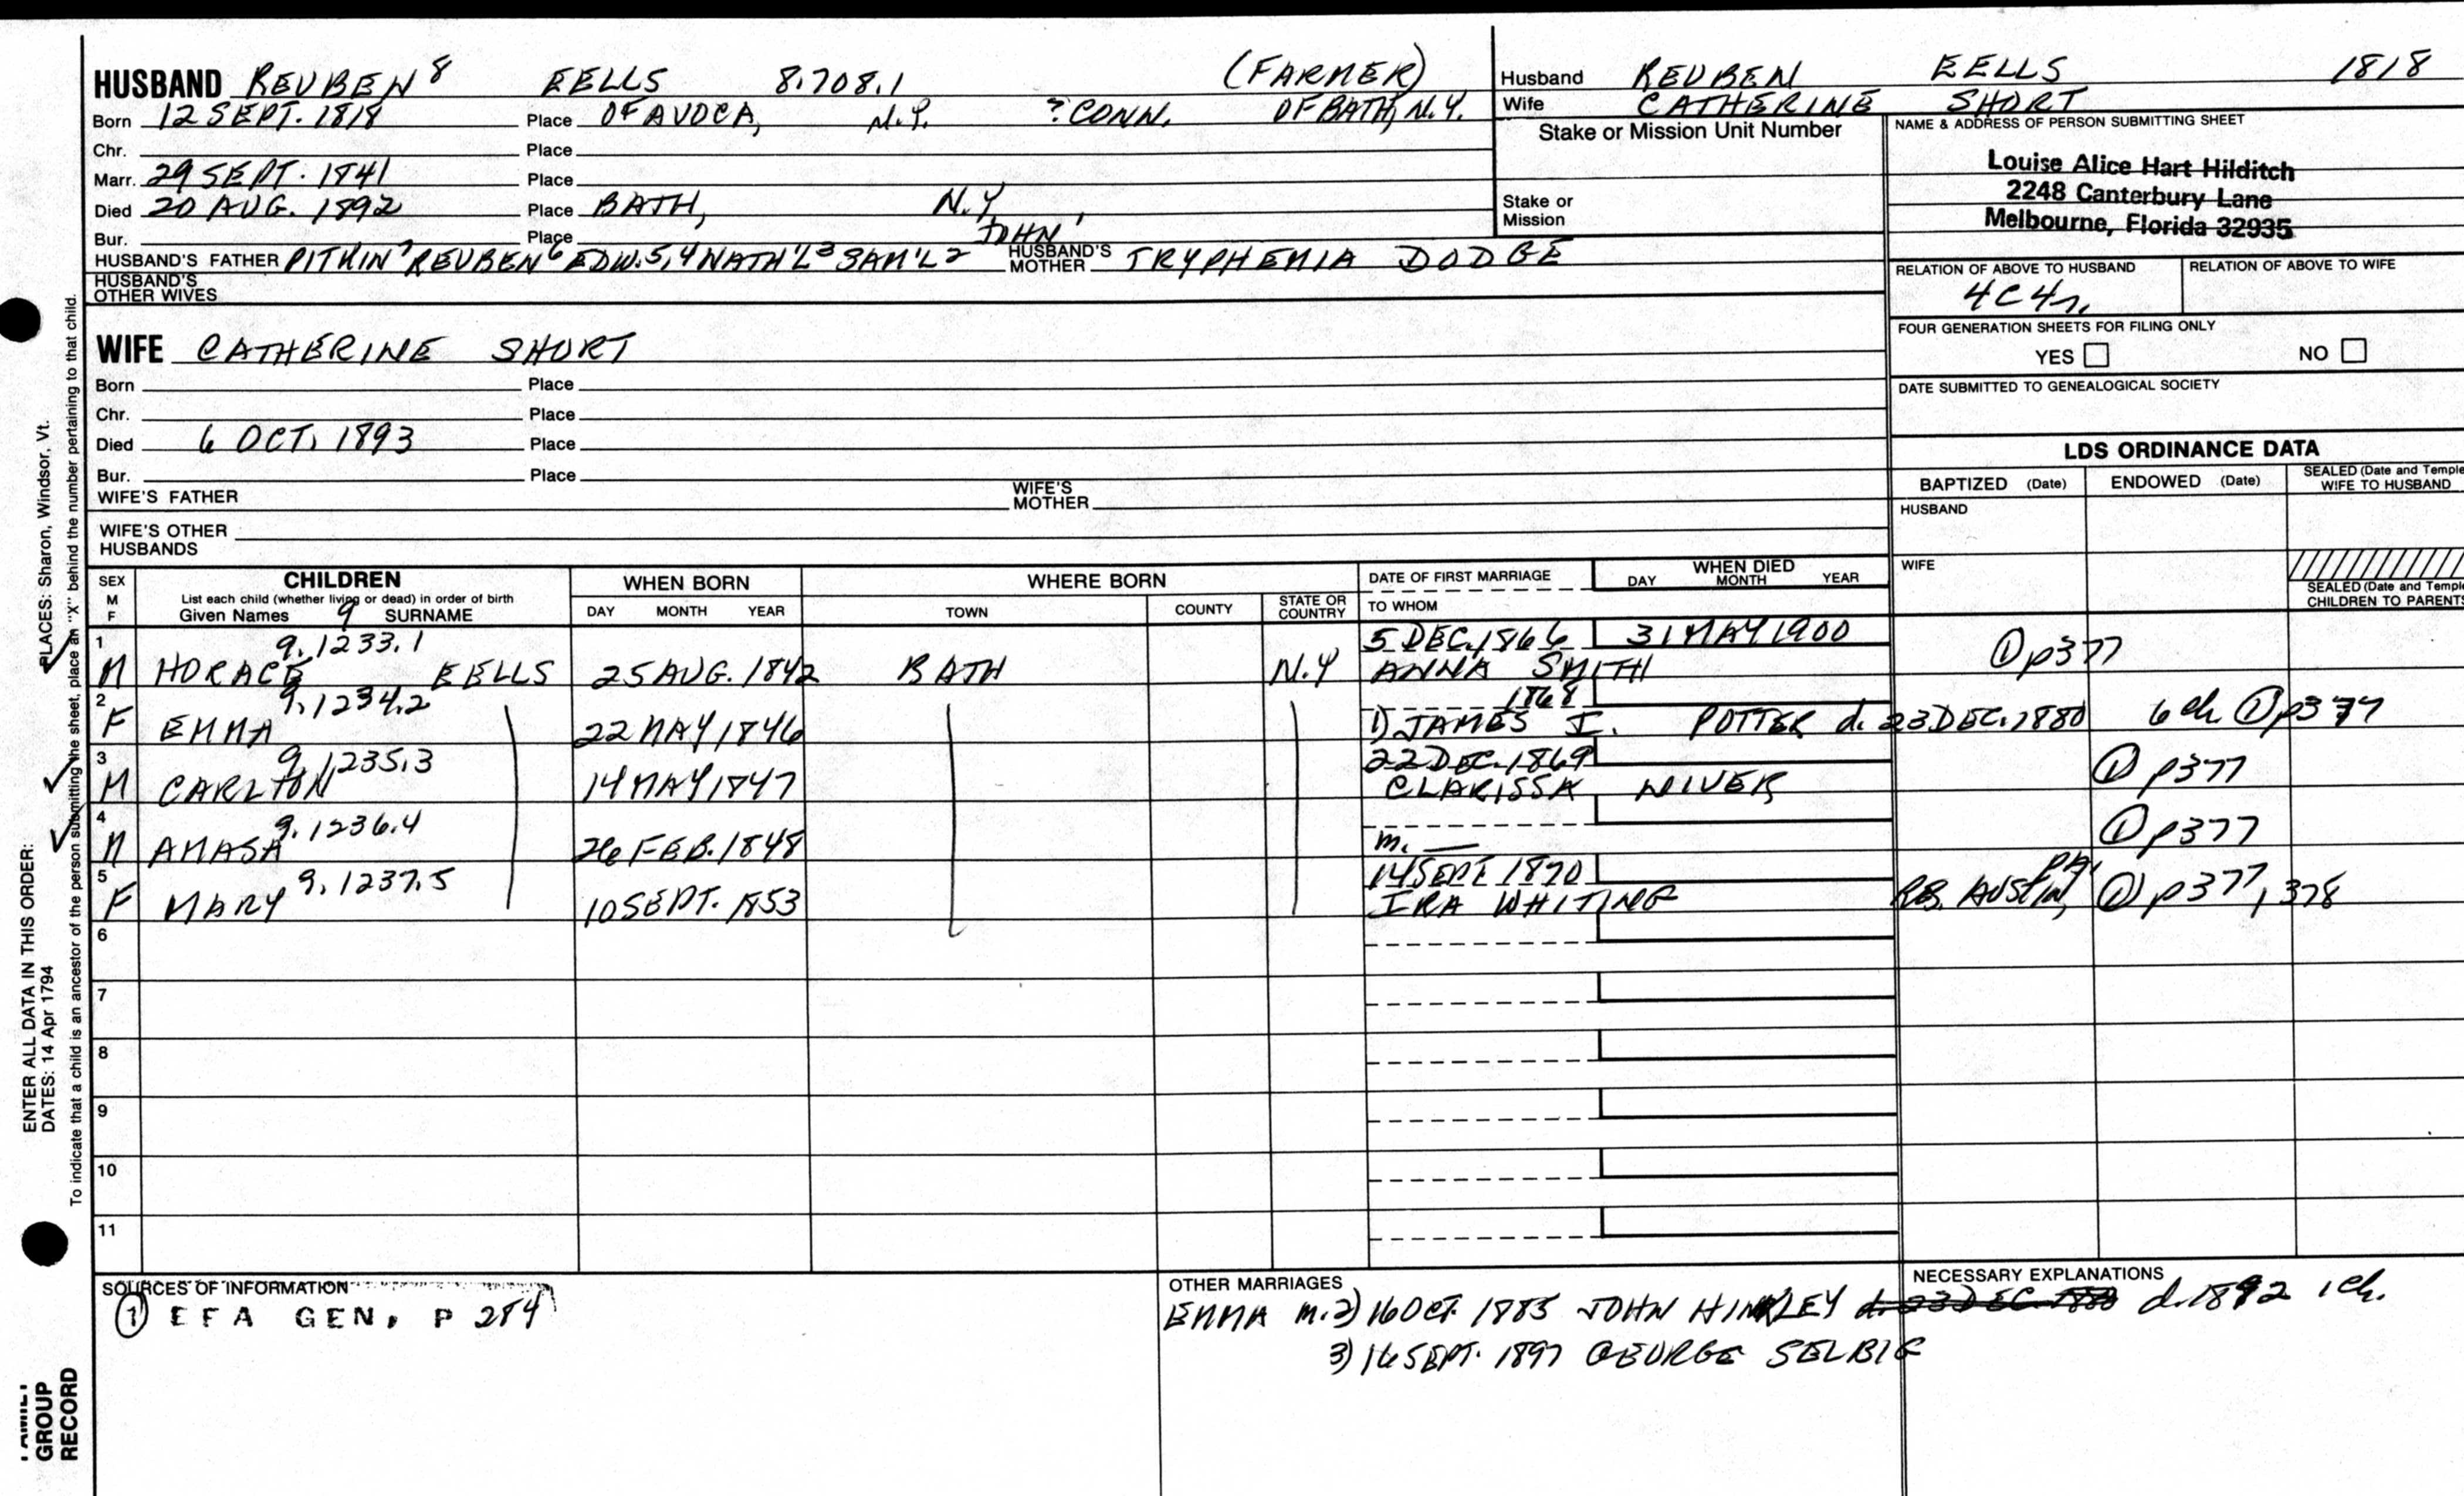 HUSBAND REUBEN 8 EELLS 8.708.1 (FARMER)
Born 12 SEPT. 1818 Place OF AVOCA, N.Y. ? CONN. OF BATH, N.Y.
Chr. Place
Marr. 29 SEPT. 1841 Place
Died 20 AUG. 1892 Place BATH, N.Y.
Bur. Place
HUSBAND'S FATHER PITKIN 7 REUBEN 6 EDW. 5,4 NATH'L 3 SAM'L 2 JOHN 1 HUSBAND'S MOTHER TRYPHENIA DODGE
HUSBAND'S OTHER WIVES
Husband REUBEN EELLS 1818
Wife CATHERINE SHORT
Stake or Mission Unit Number
Stake or Mission
NAME & ADDRESS OF PERSON SUBMITTING SHEET
Louise Alice Hart Hilditch
2248 Canterbury Lane
Melbourne, Florida 32935
RELATION OF ABOVE TO HUSBAND RELATION OF ABOVE TO WIFE
4C4r.
FOUR GENERATION SHEETS FOR FILING ONLY
YES NO
DATE SUBMITTED TO GENEALOGICAL SOCIETY
WIFE CATHERINE SHORT
Born Place
Chr. Place
Died 6 OCT. 1893 Place
Bur. Place
WIFE'S FATHER WIFE'S MOTHER
WIFE'S OTHER HUSBANDS
LDS ORDINANCE DATA
BAPTIZED (Date) ENDOWED (Date) SEALED (Date and Temple) WIFE TO HUSBAND
HUSBAND
WIFE
SEALED (Date and Temple) CHILDREN TO PARENTS
SEX M F CHILDREN WHEN BORN WHERE BORN DATE OF FIRST MARRIAGE WHEN DIED
List each child (whether living or dead) in order of birth
Given Names 9 SURNAME DAY MONTH YEAR TOWN COUNTY STATE OR COUNTRY TO WHOM DAY MONTH YEAR
1 9.1233.1 5 DEC. 1866 31 MAY 1900
M HORACE EELLS 25 AUG. 1842 BATH N.Y ANNA SMITH ① p377
2 9.1234.2 1868
F EMMA 22 MAY 1846 1) JAMES I. POTTER d. 23 DEC. 1880 6 ch ① p377
3 9.1235.3 22 DEC. 1869
M CARLTON 14 MAY 1847 CLARISSA NIVER ① p377
4 9.1236.4
M AMASA 26 FEB. 1848 m. — ① p377
5 9.1237.5 14 SEPT 1870
F MARY 10 SEPT. 1853 IRA WHITING RB. AUSTIN, PA. ① p377, 378
6
7
8
9
10
11
SOURCES OF INFORMATION
① EFA GEN, P 284
OTHER MARRIAGES
EMMA m. 2) 16 OCT. 1885 JOHN HINKLEY d. 23 DEC. 1880 d. 1892 1 ch.
3) 16 SEPT. 1897 GEORGE SELBIG
NECESSARY EXPLANATIONS
ENTER ALL DATA IN THIS ORDER:
DATES: 14 Apr 1794 PLACES: Sharon, Windsor, Vt.
To indicate that a child is an ancestor of the person submitting the sheet, place an "X" behind the number pertaining to that child.
FAMILY
GROUP
RECORD